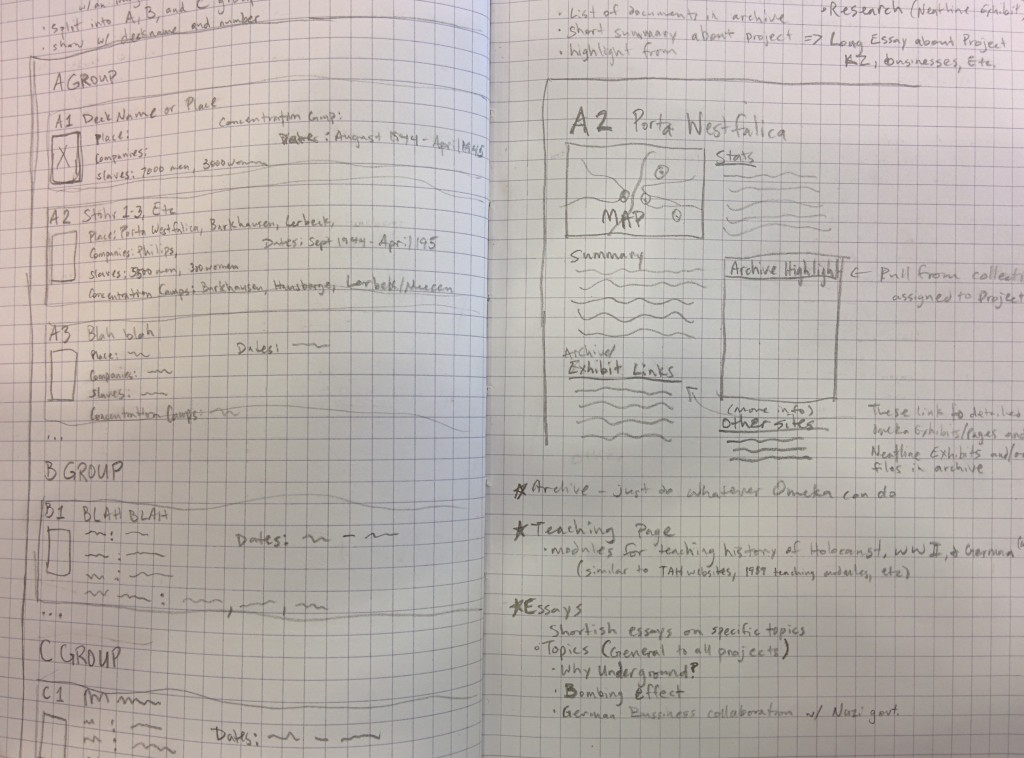 · split into A, B, and C
· show w/ deckname and number
A GROUP
A1 Deck Name or Place
Place:
Concentration Camp:
Companies:
Dates: August 1944 - April 1945
Slaves: 7000 men, 3000 women
A2 Stöhr 1-3, Etc
Place: Porta Westfalica, Barkhausen, Lerbeck,
Companies: Philips,
Dates: Sept 1944 - April 195
Slaves: 5500 men, 300 women
Concentration Camps: Barkhausen, Hausberge, Lerbeck/
A3 Blah blah
Place:
Dates:
Companies:
Slaves:
Concentration Camps:
...
B GROUP
B1 BLAH BLAH
Dates: –
...
C GROUP
C1
Dates: –
· List of documents in archive
· short summary about project => Long Essay about Project
· highlight from
KZ, businesses, Etc.
Research (Neatline Exhibit
A2 Porta Westfalica
MAP
Stats
Summary
Archive Highlight
← Pull from collecti
assigned to Project
Archive/
Exhibit Links
(more info)
Other sites
These link to detailed
Omeka Exhibits/Pages and
Neatline Exhibits and/o
files in archive
* Archive - just do whatever Omeka can do
* Teaching Page
· modules for teaching history of Holocaust, WWII, + German
(similar to TAH websites, 1989 teaching modules, etc)
* Essays
Shortish essays on specific topics
∘ Topics (General to all projects)
· Why Underground?
· Bombing Effect
· German Bussiness collaboration w/ Nazi govt.